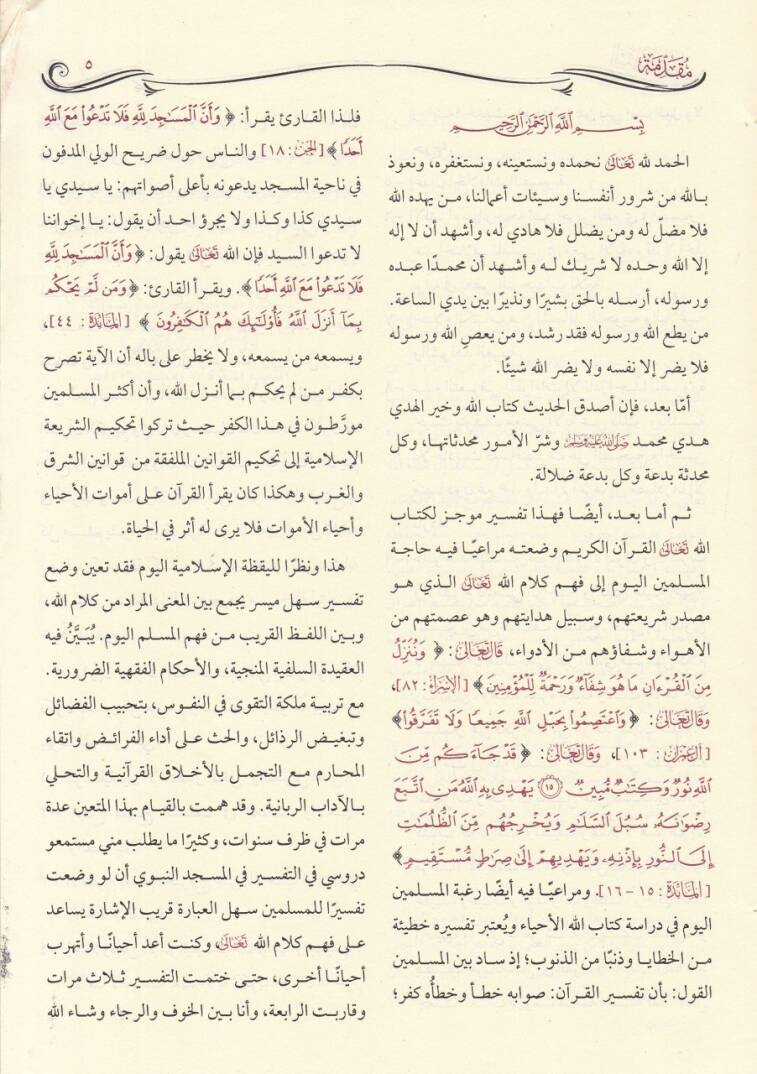 مُقَدِّمَة
٥
بِسْمِ اللَّهِ الرَّحْمَٰنِ الرَّحِيمِ
الحمد لله تَعَالَىٰ نحمده ونستعينه، ونستغفره، ونعوذ
بالله من شرور أنفسنا وسيئات أعمالنا، من يهده الله
فلا مضلّ له ومن يضلل فلا هادي له، وأشهد أن لا إله
إلا الله وحده لا شريك له وأشهد أن محمدًا عبده
ورسوله، أرسله بالحق بشيرًا ونذيرًا بين يدي الساعة.
من يطع الله ورسوله فقد رشد، ومن يعصِ الله ورسوله
فلا يضر إلا نفسه ولا يضر الله شيئًا.
أمّا بعد، فإن أصدق الحديث كتاب الله وخير الهدي
هدي محمد صَلَّى اللَّهُ عَلَيْهِ وَسَلَّمَ وشرّ الأمور محدثاتها، وكل
محدثة بدعة وكل بدعة ضلالة.
ثم أما بعد، أيضًا فهذا تفسير موجز لكتاب
الله تَعَالَىٰ القرآن الكريم وضعته مراعيًا فيه حاجة
المسلمين اليوم إلى فهم كلام الله تَعَالَىٰ الذي هو
مصدر شريعتهم، وسبيل هدايتهم وهو عصمتهم من
الأهواء وشفاؤهم من الأدواء، قَالَ تَعَالَىٰ: ﴿ وَنُنَزِّلُ
مِنَ الْقُرْءَانِ مَا هُوَ شِفَاءٌ وَرَحْمَةٌ لِّلْمُؤْمِنِينَ ﴾ [الإسراء: ٨٢]،
وقَالَ تَعَالَىٰ: ﴿ وَاعْتَصِمُوا بِحَبْلِ اللَّهِ جَمِيعًا وَلَا تَفَرَّقُوا ﴾
[آل عمران: ١٠٣]، وقَالَ تَعَالَىٰ: ﴿ قَدْ جَاءَكُم مِّنَ
اللَّهِ نُورٌ وَكِتَابٌ مُّبِينٌ ۝١٥ يَهْدِي بِهِ اللَّهُ مَنِ اتَّبَعَ
رِضْوَانَهُ سُبُلَ السَّلَامِ وَيُخْرِجُهُم مِّنَ الظُّلُمَاتِ
إِلَى النُّورِ بِإِذْنِهِ وَيَهْدِيهِمْ إِلَىٰ صِرَاطٍ مُّسْتَقِيمٍ ﴾
[المائدة: ١٥ - ١٦]. ومراعيًا فيه أيضًا رغبة المسلمين
اليوم في دراسة كتاب الله الأحياء ويُعتبر تفسيره خطيئة
من الخطايا وذنبًا من الذنوب؛ إذ ساد بين المسلمين
القول: بأن تفسير القرآن: صوابه خطأ وخطأُه كفر؛
فلذا القارئ يقرأ: ﴿ وَأَنَّ الْمَسَاجِدَ لِلَّهِ فَلَا تَدْعُوا مَعَ اللَّهِ
أَحَدًا ﴾ [الجن: ١٨] والناس حول ضريح الولي المدفون
في ناحية المسجد يدعونه بأعلى أصواتهم: يا سيدي يا
سيدي كذا وكذا ولا يجرؤ احد أن يقول: يا إخواننا
لا تدعوا السيد فإن الله تَعَالَىٰ يقول: ﴿ وَأَنَّ الْمَسَاجِدَ لِلَّهِ
فَلَا تَدْعُوا مَعَ اللَّهِ أَحَدًا ﴾. ويقرأ القارئ: ﴿ وَمَن لَّمْ يَحْكُم
بِمَا أَنزَلَ اللَّهُ فَأُولَٰئِكَ هُمُ الْكَافِرُونَ ﴾ [المائدة: ٤٤]،
ويسمعه من يسمعه، ولا يخطر على باله أن الآية تصرح
بكفر من لم يحكم بما أنزل الله، وأن أكثر المسلمين
مورَّطون في هذا الكفر حيث تركوا تحكيم الشريعة
الإسلامية إلى تحكيم القوانين الملفقة من قوانين الشرق
والغرب وهكذا كان يقرأ القرآن على أموات الأحياء
وأحياء الأموات فلا يرى له أثر في الحياة.
هذا ونظرًا لليقظة الإسلامية اليوم فقد تعين وضع
تفسير سهل ميسر يجمع بين المعنى المراد من كلام الله،
وبين اللفظ القريب من فهم المسلم اليوم. يُبَيَّنُ فيه
العقيدة السلفية المنجية، والأحكام الفقهية الضرورية.
مع تربية ملكة التقوى في النفوس، بتحبيب الفضائل
وتبغيض الرذائل، والحث على أداء الفرائض واتقاء
المحارم مع التجمل بالأخلاق القرآنية والتحلي
بالآداب الربانية. وقد هممت بالقيام بهذا المتعين عدة
مرات في ظرف سنوات، وكثيرًا ما يطلب مني مستمعو
دروسي في التفسير في المسجد النبوي أن لو وضعت
تفسيرًا للمسلمين سهل العبارة قريب الإشارة يساعد
على فهم كلام الله تَعَالَىٰ، وكنت أعد أحيانًا وأتهرب
أحيانًا أخرى، حتى ختمت التفسير ثلاث مرات
وقاربت الرابعة، وأنا بين الخوف والرجاء وشاء الله